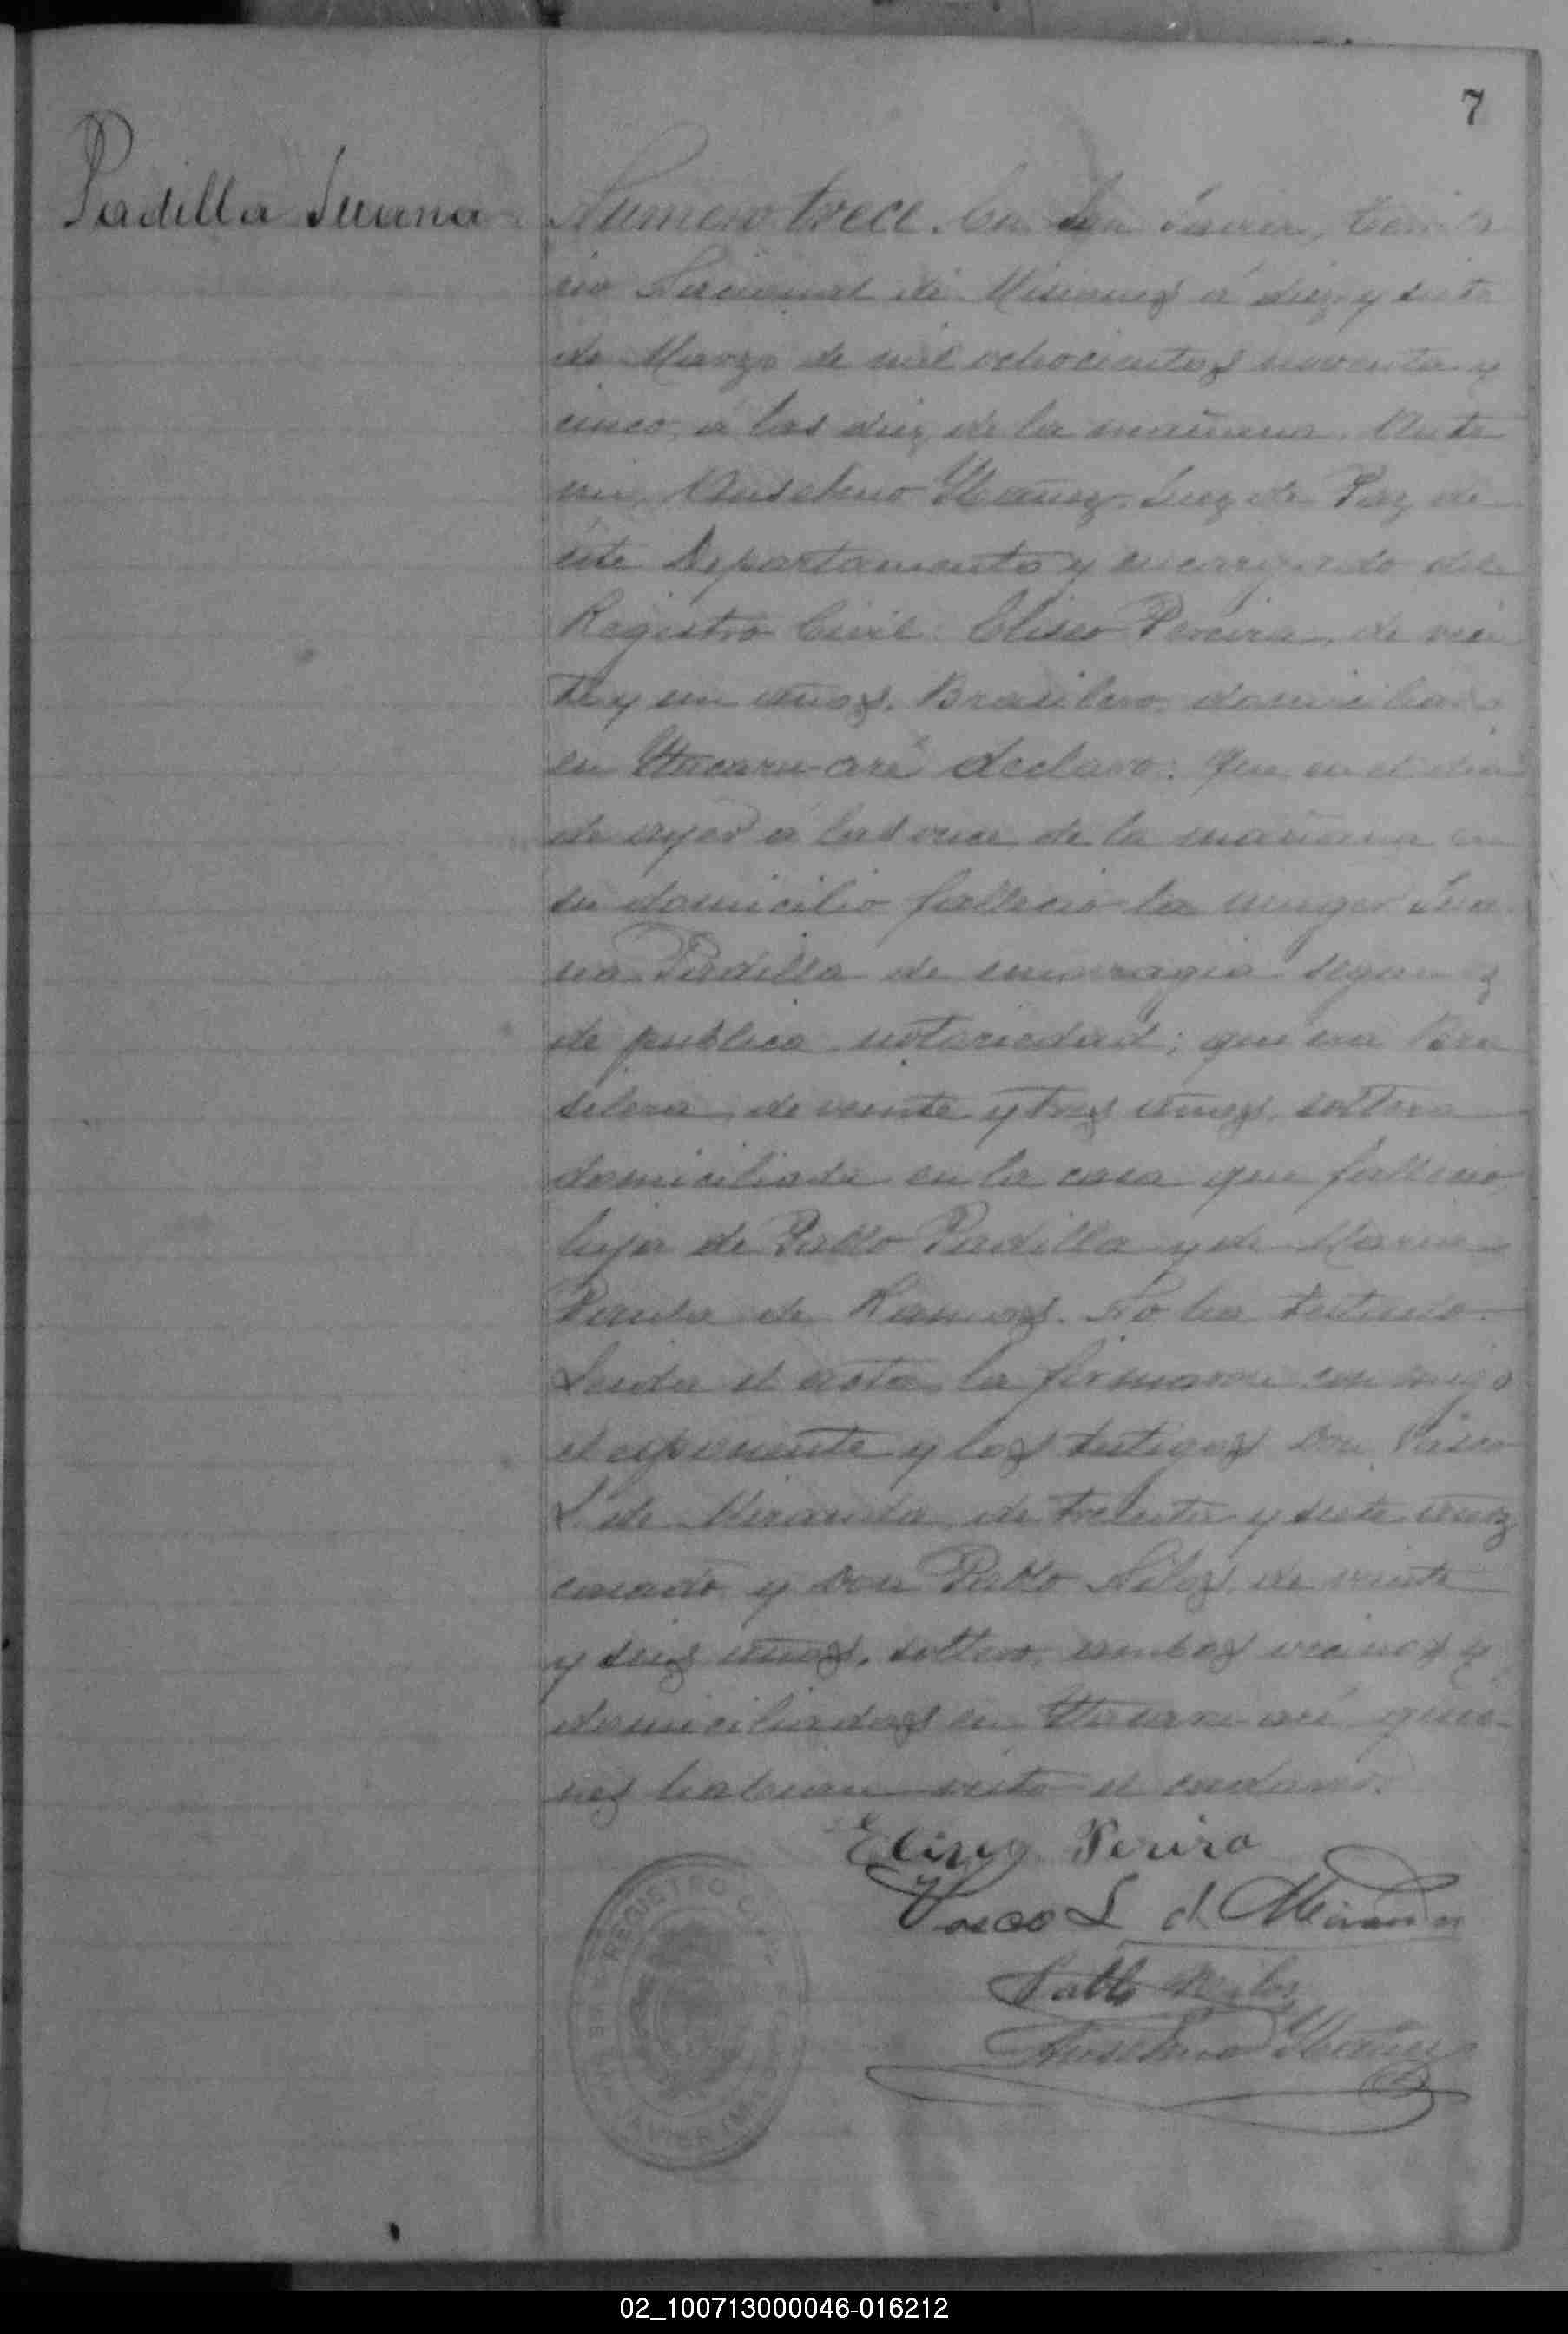 7
Padilla Juana
Numero trece. En San Javier, Territo
rio Nacional de Misiones á diez y siete
de Marzo de mil ochocientos noventa y
cinco, á las diez de la mañana. Ante
mi, Anselmo Ybañez, Juez de Paz de
este Departamento y encargado del
Registro Civil: Eliseo Pereira, de vein
te y un años, Brasilero, domiciliado
en declaro: Que en el dia
de ayer á las once de la mañana en
su domicilio fallecio la muger Jua
na Padilla de emorragia segun es
de publica notoriedad; que era Bra
silera, de veinte y tres años, soltera
domiciliada en la casa que fallecio,
hija de Pablo Padilla y de Maria
Paula de Ramos. No ha testado.
Leida el acta, la firmaron con migo
el esponente y los testigos Don Vasco
L. de Miranda, de treinta y siete años
casado y Don Pablo de veinte
y seis años, soltero, ambos vecinos y
domiciliados en quie-
nes habian visto el cadaver.
Periro
Vasco L d Miranda
Pablo
Anselmo Ybañez
REGISTRO
JAVIER
02_100713000046-016212